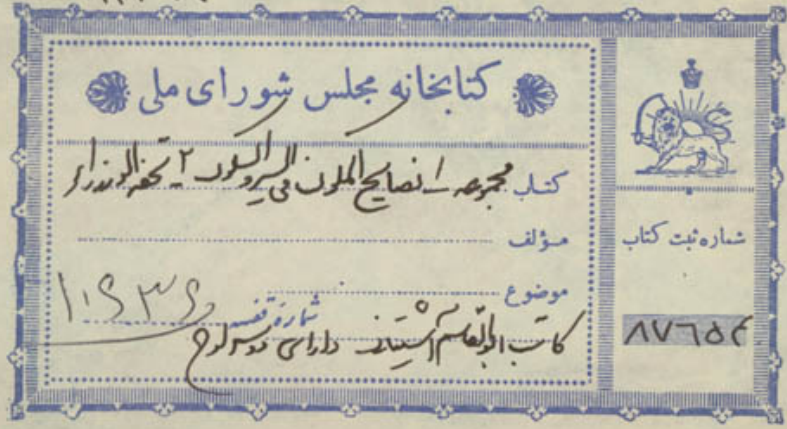 کتابخانه مجلس شورای ملی
کتاب مجموعه ۱ نصایح الملوک فی السیر و السلوک ۲ تحفه الوزراء
مؤلف
موضوع
شماره قفسه
کاتب ابوالقاسم آشتیانی دارای دو سرلوح
شماره ثبت کتاب
۸۷۶۵۴